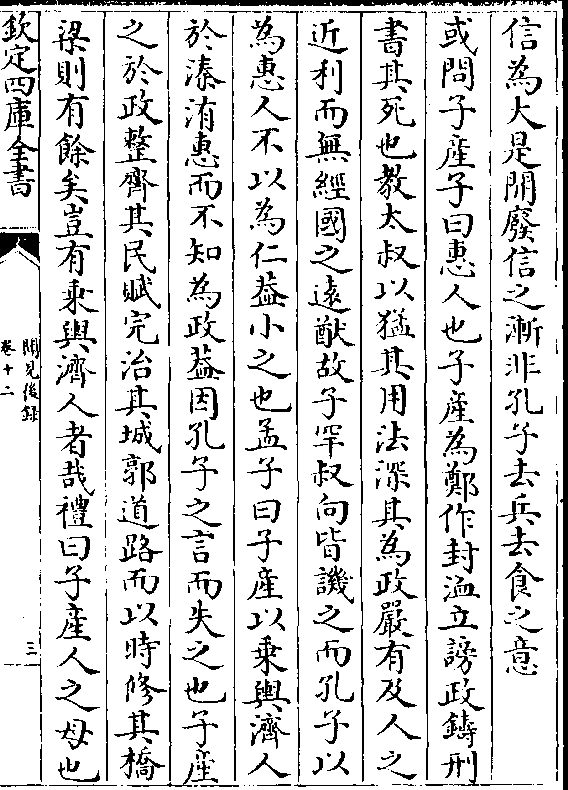 信為大是開廢信之漸非孔子去兵去食之意
或問子産子曰惠人也子産為鄭作封洫立謗政鑄刑
書其死也教太叔以猛其用法深其為政嚴有及人之
近利而無經國之逺猷故子罕叔向皆譏之而孔子以
為惠人不以為仁葢小之也孟子曰子産以乗輿濟人
於溱洧惠而不知為政葢因孔子之言而失之也子産
之於政整齊其民賦完治其城郭道路而以時修其橋
梁則有餘矣豈有乗輿濟人者哉禮曰子産人之母也
欽定四庫全書
聞見後録
卷十二
三